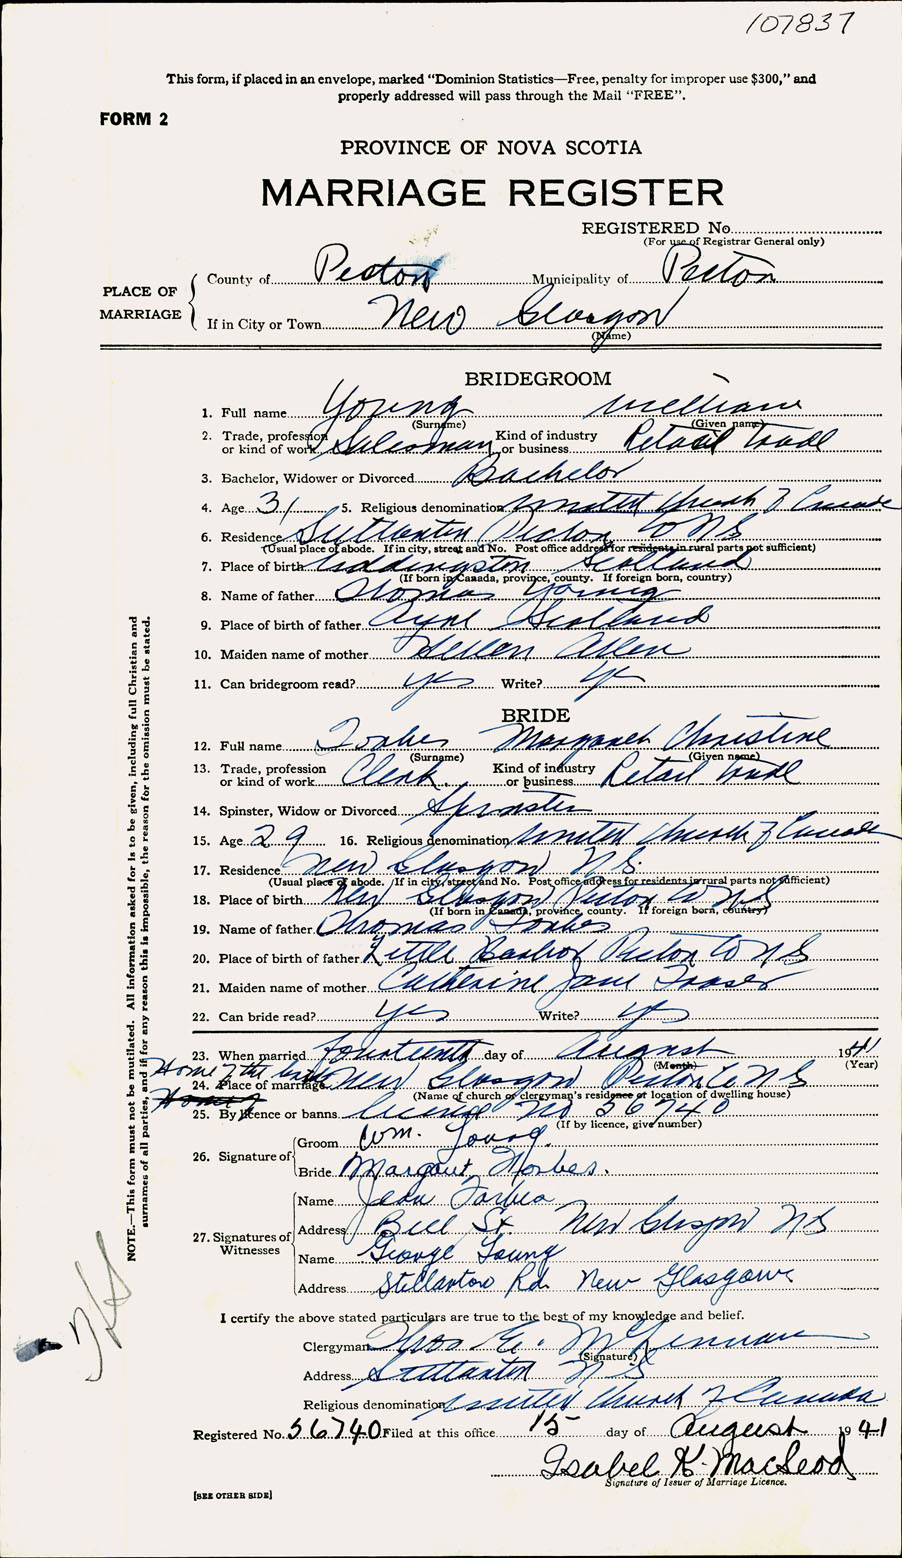 107837
This form, if placed in an envelope, marked "Dominion Statistics—Free, penalty for improper use $300," and
properly addressed will pass through the Mail "FREE".
FORM 2
PROVINCE OF NOVA SCOTIA
MARRIAGE REGISTER
REGISTERED No.
(For use of Registrar General only)
PLACE OF MARRIAGE
County of Pictou Municipality of Pictou
If in City or Town New Glasgow
(Name)
BRIDEGROOM
1. Full name Young William
(Surname) (Given name)
2. Trade, profession or kind of work Salesman Kind of industry or business Retail trade
3. Bachelor, Widower or Divorced Bachelor
4. Age 31 5. Religious denomination United Church of Canada
6. Residence Stellarton Pictou Co N S
(Usual place of abode. If in city, street and No. Post office address for residents in rural parts not sufficient)
7. Place of birth Uddingston Scotland
(If born in Canada, province, county. If foreign born, country)
8. Name of father Thomas Young
9. Place of birth of father Scotland
10. Maiden name of mother Allen
11. Can bridegroom read? yes Write? yes
BRIDE
12. Full name Forbes Margaret Christine
(Surname) (Given name)
13. Trade, profession or kind of work Clerk Kind of industry or business Retail trade
14. Spinster, Widow or Divorced Spinster
15. Age 29 16. Religious denomination United Church of Canada
17. Residence New Glasgow N S.
(Usual place of abode. If in city, street and No. Post office address for residents in rural parts not sufficient)
18. Place of birth New Glasgow Pictou Co N S
(If born in Canada, province, county. If foreign born, country)
19. Name of father Thomas Forbes
20. Place of birth of father Little Harbor Pictou Co N S
21. Maiden name of mother Catherine Jane Fraser
22. Can bride read? yes Write? yes
23. When married fourteenth day of August 1941
(Month) (Year)
Home of the bride
24. Place of marriage New Glasgow Pictou Co N S
(Name of church or clergyman's residence or location of dwelling house)
25. By licence or banns license No 56740
(If by licence, give number)
26. Signature of
Groom Wm. Young.
Bride Margaret Forbes.
27. Signatures of Witnesses
Name Jean Forbes
Address Bell St. New Glasgow N S
Name George Young
Address Stellarton Rd. New Glasgow
I certify the above stated particulars are true to the best of my knowledge and belief.
Clergyman Thos E.
(Signature)
Address Stellarton N S
Religious denomination United Church of Canada
Registered No. 56740 Filed at this office 15 day of August 1941
Isabel K. MacLeod
Signature of Issuer of Marriage Licence.
[SEE OTHER SIDE]
NOTE.—This form must not be mutilated. All information asked for is to be given, including full Christian and
surnames of all parties, and if for any reason this is impossible, the reason for the omission must be stated.